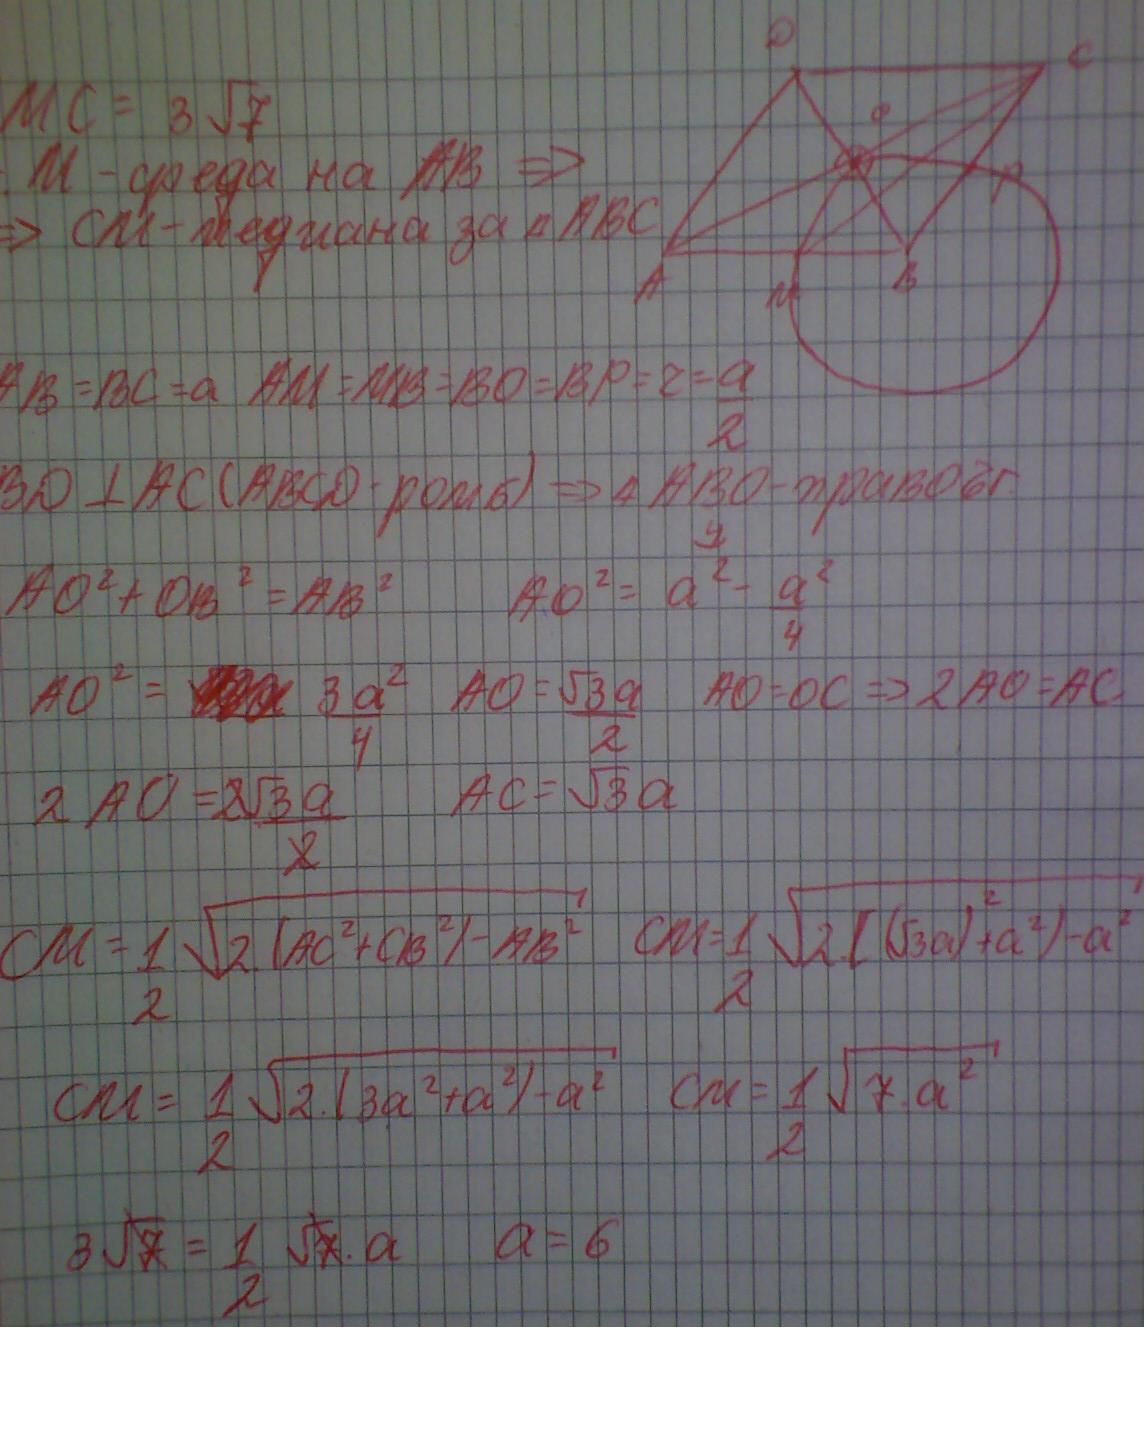 MC = 3√7
M - среда на AB =>
=> CM - медиана за △ABC
D
C
O
P
A
M
B
AB = BC = a AM = MB = BO = BP = r = a/2
BD ⊥ AC (ABCD - ромб) => △ ABO - правоъг.
AO² + OB² = AB² AO² = a² - a²/4
AO² = 3a²/4 AO = √3a/2 AO = OC => 2AO = AC
2 AO = 2√3a/2 AC = √3a
CM = 1/2 √2.(AC² + CB²) - AB² CM = 1/2 √2.((√3a)² + a²) - a²
CM = 1/2 √2.(3a² + a²) - a² CM = 1/2 √7.a²
3√7 = 1/2 √7.a a = 6